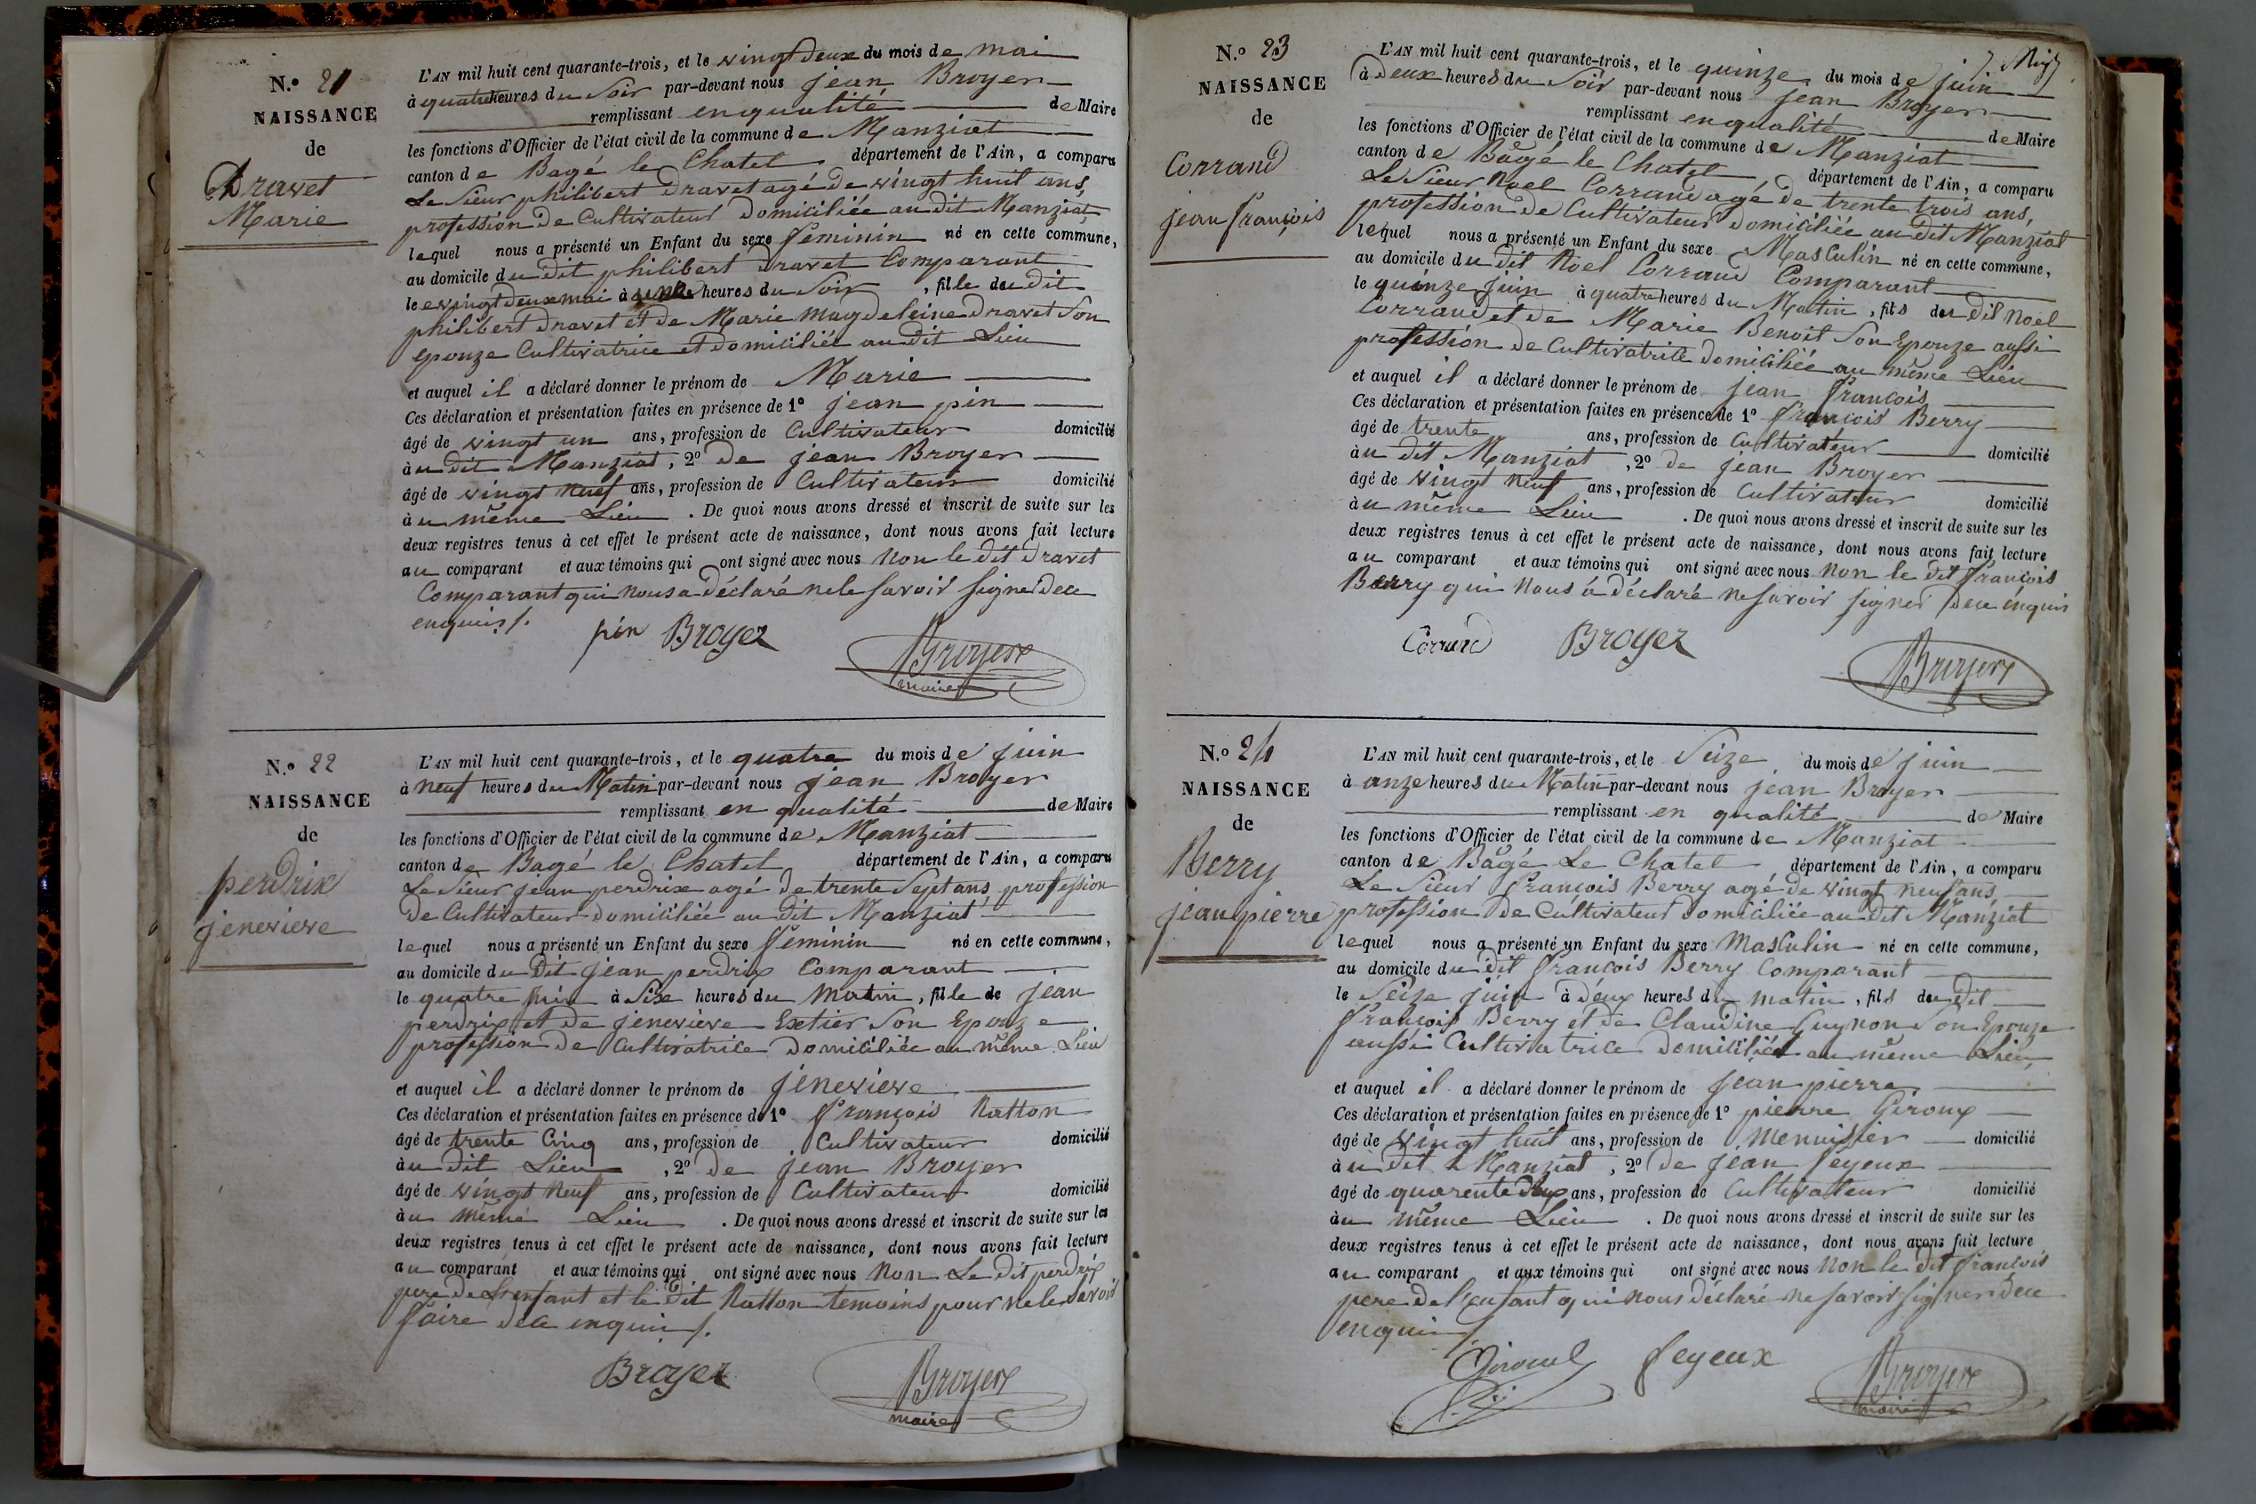 N.o 21
NAISSANCE
de
Dravet
Marie
L'AN mil huit cent quarante-trois, et le vingt deux du mois de mai
à quatre heures du Soir par-devant nous jean Broyer
remplissant en qualité de Maire
les fonctions d'Officier de l'état civil de la commune de Manziat
canton de Bagé le Chatel département de l'Ain, a comparu
Le Sieur philibert Dravet agé de vingt huit ans,
profession de Cultivateur Domiciliée au dit Manziat
lequel nous a présenté un Enfant du sexe feminin né en cette commune,
au domicile du dit philibert Dravet Comparant
le vingt deux mai à une heures du Soir, fille du dit
philibert Dravet et de Marie Magdeleine Dravet Son
Epouze Cultivatrice et domiciliée au dit Lieu
et auquel il a déclaré donner le prénom de Marie
Ces déclaration et présentation faites en présence de 1o jean pin
âgé de vingt un ans, profession de Cultivateur domicilié
àu dit Manziat, 2o de jean Broyer
âgé de vingt neuf ans, profession de Cultivateur domicilié
àu même Lieu. De quoi nous avons dressé et inscrit de suite sur les
deux registres tenus à cet effet le présent acte de naissance, dont nous avons fait lecture
au comparant et aux témoins qui ont signé avec nous Non le dit Dravet
Comparant qui nous a déclaré ne le savoir signer de ce
enquis /.
pin Broyer
Broyer
maire
N.o 22
NAISSANCE
de
perdrix
jenevieve
L'AN mil huit cent quarante-trois, et le quatre du mois de juin
à neuf heures du Matin par-devant nous jean Broyer
remplissant en qualité de Maire
les fonctions d'Officier de l'état civil de la commune de Manziat
canton de Bagé le Chatel département de l'Ain, a comparu
Le Sieur jean perdrix agé de trente Sept ans profession
de Cultivateur domiciliée au dit Manziat
lequel nous a présenté un Enfant du sexe feminin né en cette commune,
au domicile du Dit jean perdrix Comparant
le quatre juin à Six heures du matin, fille de jean
perdrix et de jenevieve Extier Son Epouze
profession de Cultivatrice Domiciliée au même Lieu
et auquel il a déclaré donner le prénom de jenevieve
Ces déclaration et présentation faites en présence de 1o françois Ratton
âgé de trente Cinq ans, profession de Cultivateur domicilié
àu dit Lieu, 2o de jean Broyer
âgé de vingt neuf ans, profession de Cultivateur domicilié
àu même Lieu. De quoi nous avons dressé et inscrit de suite sur les
deux registres tenus à cet effet le présent acte de naissance, dont nous avons fait lecture
au comparant et aux témoins qui ont signé avec nous Non Le Dit perdrix
pere de L'enfant et le Dit Ratton temoins pour ne le Savoir
faire de ce enquis /.
Broyer
Broyer
maire
N.o 23
NAISSANCE
de
Corrand
jean françois
L'AN mil huit cent quarante-trois, et le quinze du mois de juin
à Deux heures du Soir par-devant nous jean Broyer
remplissant en qualité de Maire
les fonctions d'Officier de l'état civil de la commune de Manziat
canton de Bâgé le Chatel, département de l'Ain, a comparu
Le Sieur Noel Corrand agé de trente trois ans,
profession de Cultivateur Domiciliée au dit Manziat
lequel nous a présenté un Enfant du sexe Masculin né en cette commune,
au domicile du dit Noel Corrand Comparant
le quinze juin à quatre heures du Matin, fils du dit Noel
Corrand et de Marie Benoit Son Epouze aussi
profession de Cultivatrice domiciliée au même Lieu
et auquel il a déclaré donner le prénom de jean françois
Ces déclaration et présentation faites en présence de 1o françois Berry
âgé de trente ans, profession de Cultivateur domicilié
àu dit Manziat, 2o de jean Broyer
âgé de vingt neuf ans, profession de Cultivateur domicilié
àu même Lieu. De quoi nous avons dressé et inscrit de suite sur les
deux registres tenus à cet effet le présent acte de naissance, dont nous avons fait lecture
au comparant et aux témoins qui ont signé avec nous Non le dit françois
Berry qui Nous à déclaré ne savoir signer de ce enquis
Corrand Broyer
Broyer
N.o 24
NAISSANCE
de
Berry
jean pierre
L'AN mil huit cent quarante-trois, et le Seize du mois de juin
à onze heures du Matin par-devant nous jean Broyer
remplissant en qualité de Maire
les fonctions d'Officier de l'état civil de la commune de Manziat
canton de Bâgé Le Chatel département de l'Ain, a comparu
Le Sieur françois Berry agé de vingt neuf ans
profession de Cultivateur domiciliée au dit Manziat
lequel nous a présenté un Enfant du sexe Masculin né en cette commune,
au domicile du dit françois Berry Comparant
le Seize juin à deux heures du matin, fils du dit
françois Berry et de Claudine Guynon Son Epouze
aussi Cultivatrice domiciliée au même Lieu
et auquel il a déclaré donner le prénom de jean pierre
Ces déclaration et présentation faites en présence de 1o pierre Giroux
âgé de vingt huit ans, profession de Menuisier domicilié
àu dit Manziat, 2o de jean feyeux
âgé de quarente deux ans, profession de Cultivateur domicilié
àu même Lieu. De quoi nous avons dressé et inscrit de suite sur les
deux registres tenus à cet effet le présent acte de naissance, dont nous avons fait lecture
au comparant et aux témoins qui ont signé avec nous Non le dit françois
pere de l'enfant qui nous déclaré ne savoir signer de ce
enquis /
feyeux
Broyer
maire